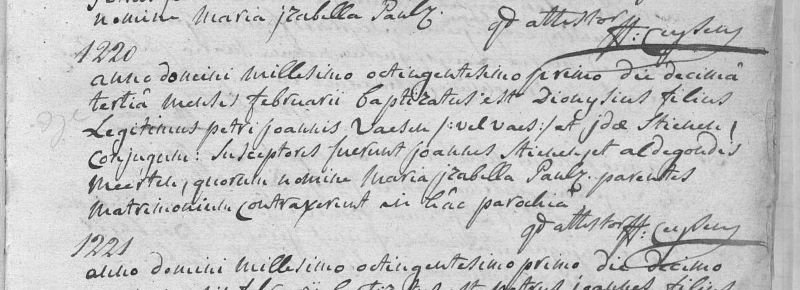 nomine maria jzabella Paulz. qd attestor H: Cuyseny
1220
anno domini millesimo octingentesimo primo die decimâ
tertiâ mensis februarii baptizatus est Dionysius filius
Legitimus petri joannis Vaesen /:vel vaes:/ et jdæ Stienen,
conjugum: Susceptores fuerunt joannes Stienen, et aldegondis
meerten, quorum nomine maria jzabella Paulz. parentes
matrimonium contraxerunt in hâc parochiâ
qd attestor H: Cuyseny
1221
anno domini millesimo octingentesimo primo die decimo
petrus joannes filius